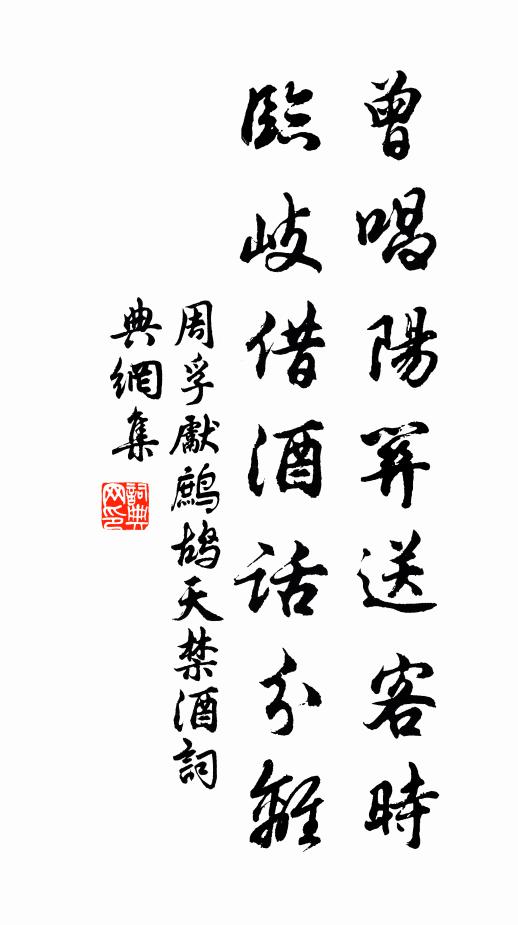 曾唱陽關送客時
臨歧借酒話分離
周孚獻鷓鴣天禁酒詞
典網集
詞典
网印